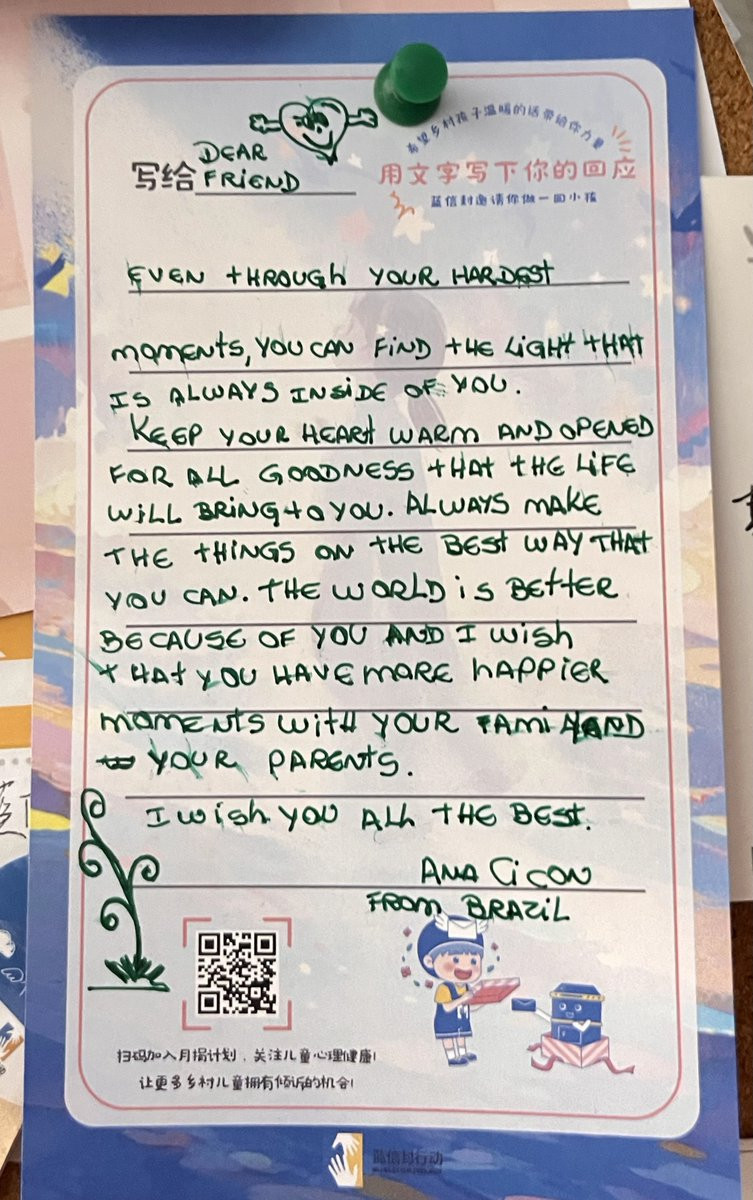 希望乡村孩子温暖的话带给你力量
用文字写下你的回应
蓝信封邀请你做一回小孩
写给 DEAR
FRiEND
EVEN tHROUGh YOUR HARDEST
moMENts, YOU CAN FiND tHE LiGHt tHAt
IS ALWAYS INSiDE OF YOU.
KEEP YOUR HEARt WARM AND OPENED
FOR ALL GOODNESS tHAt tHE LiFE
WiLL BRiNG tO YOU. ALWAYS MAKE
THE tHiNGS ON tHE BESt WAY THAt
YOU CAN. THE WORLD iS BEttER
BECAUSE OF YOU AND I WiSh
tHAt YOU HAVE moRE hAPPiER
moMENts WitH YOUR FAMiLY AND
YOUR PARENtS.
I WiSh YOU ALL tHE BESt.
ANA CiCON
FROM BRAZiL
扫码加入月捐计划，关注儿童心理健康！
让更多乡村儿童拥有倾诉的机会！
蓝信封行动